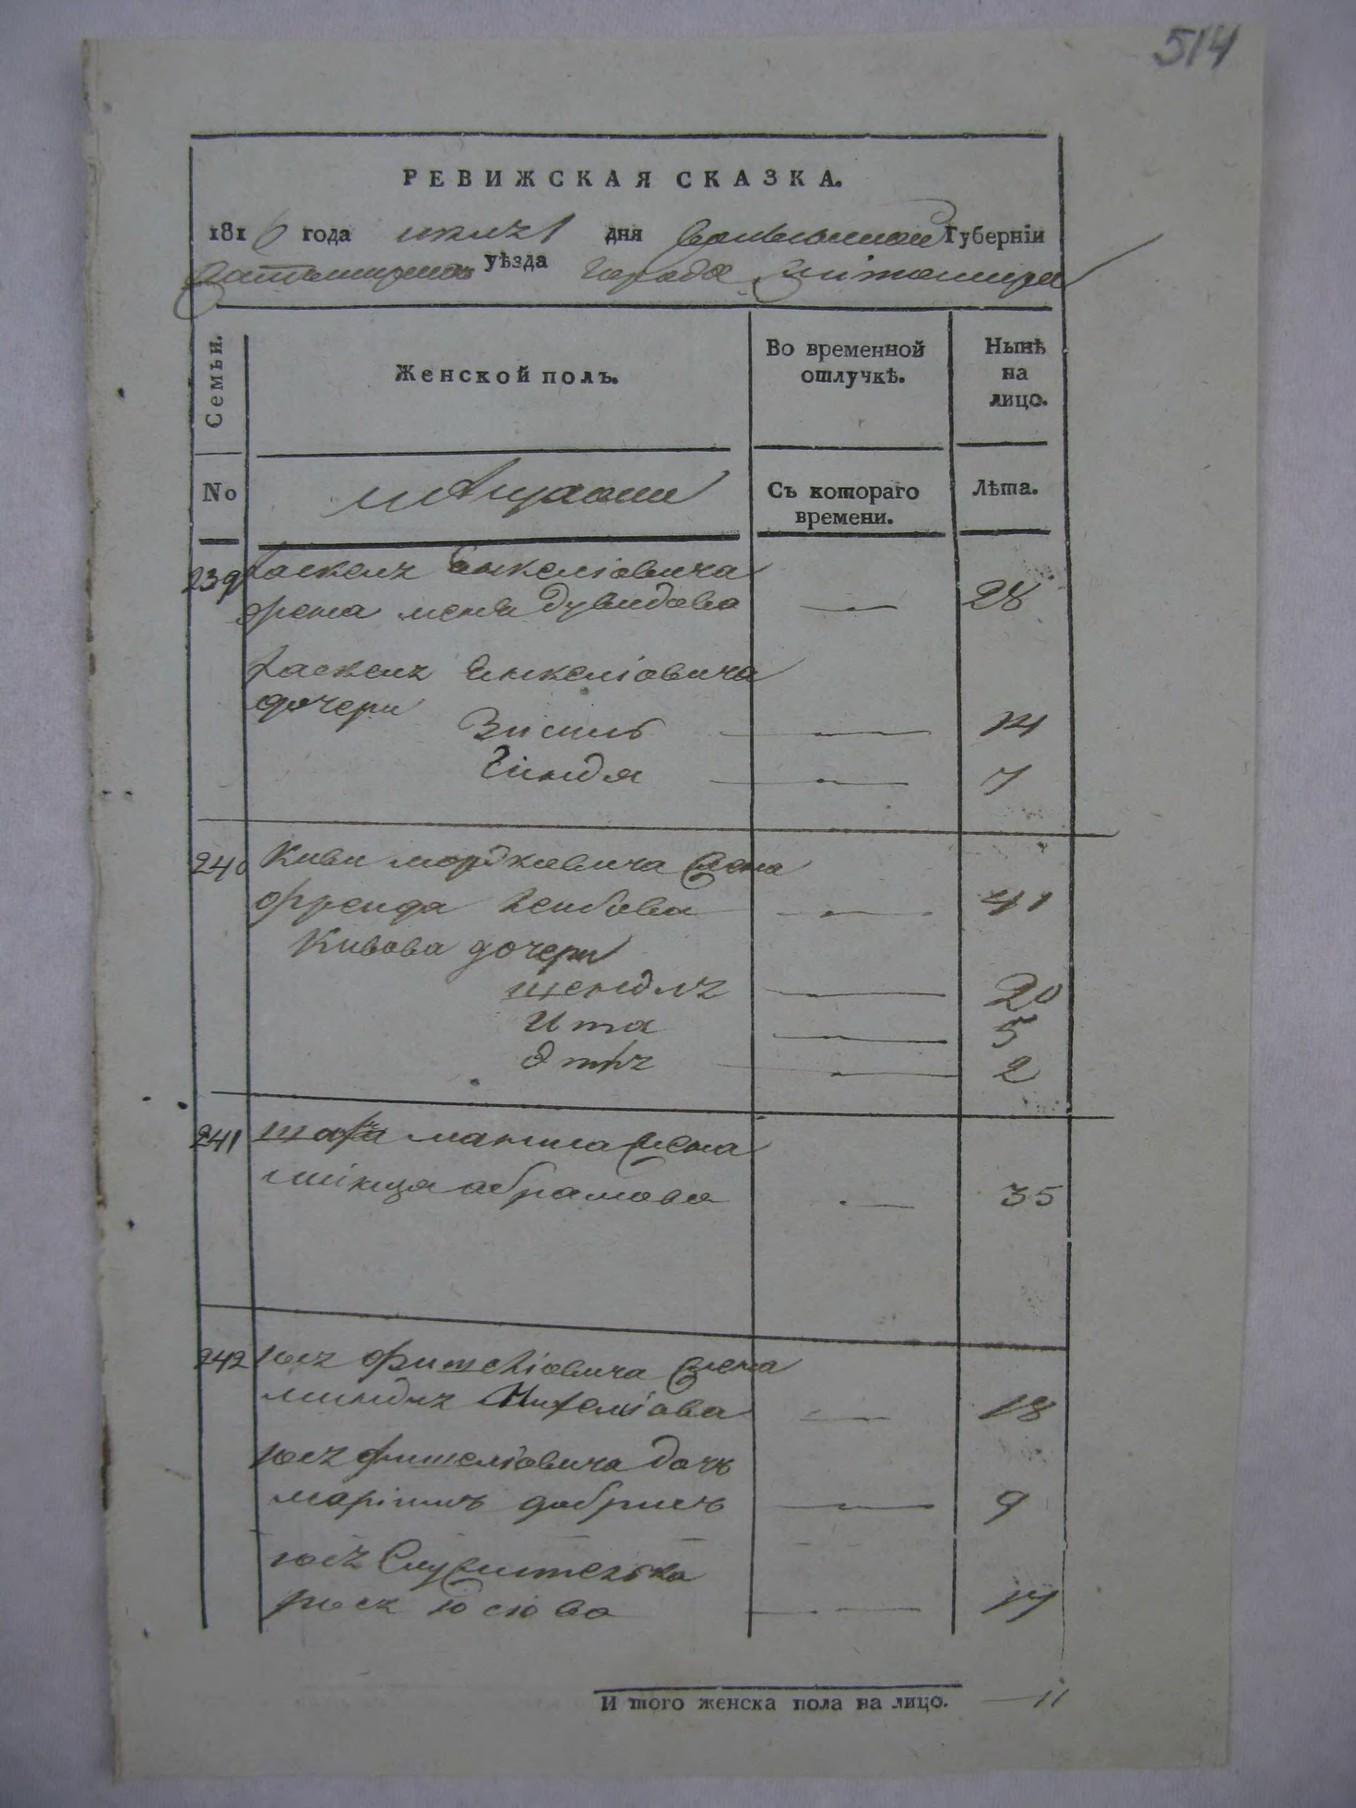 514
РЕВИЖСКАЯ СКАЗКА.
1816 года дня Волынской Губерніи
Житомирскаго уѣзда города Житомира
Семьи.
Женской полъ.
Во временной отлучкѣ.
Нынѣ на лицо.
No
мещане
Съ котораго времени.
Лѣта.
239 Хаскелъ Енкеліовича
жена Дувидова — 28
Хаскелъ Енкеліовича
дочери
Зисель — 14
Гиндя — 7
240 Киви Мордковича жена
Фрейда Лейбова — 41
Кивова дочери
Шендлъ — 20
Ита — 5
Этлъ — 2
241 жена
Абрамова — 35
242 Юсъ Фишеліовича жена
Миндлъ — 18
Юсъ Фишеліовича дочь
— 9
Юсъ Служителька
Юсіова — 14
И того женска пола на лицо. — 11